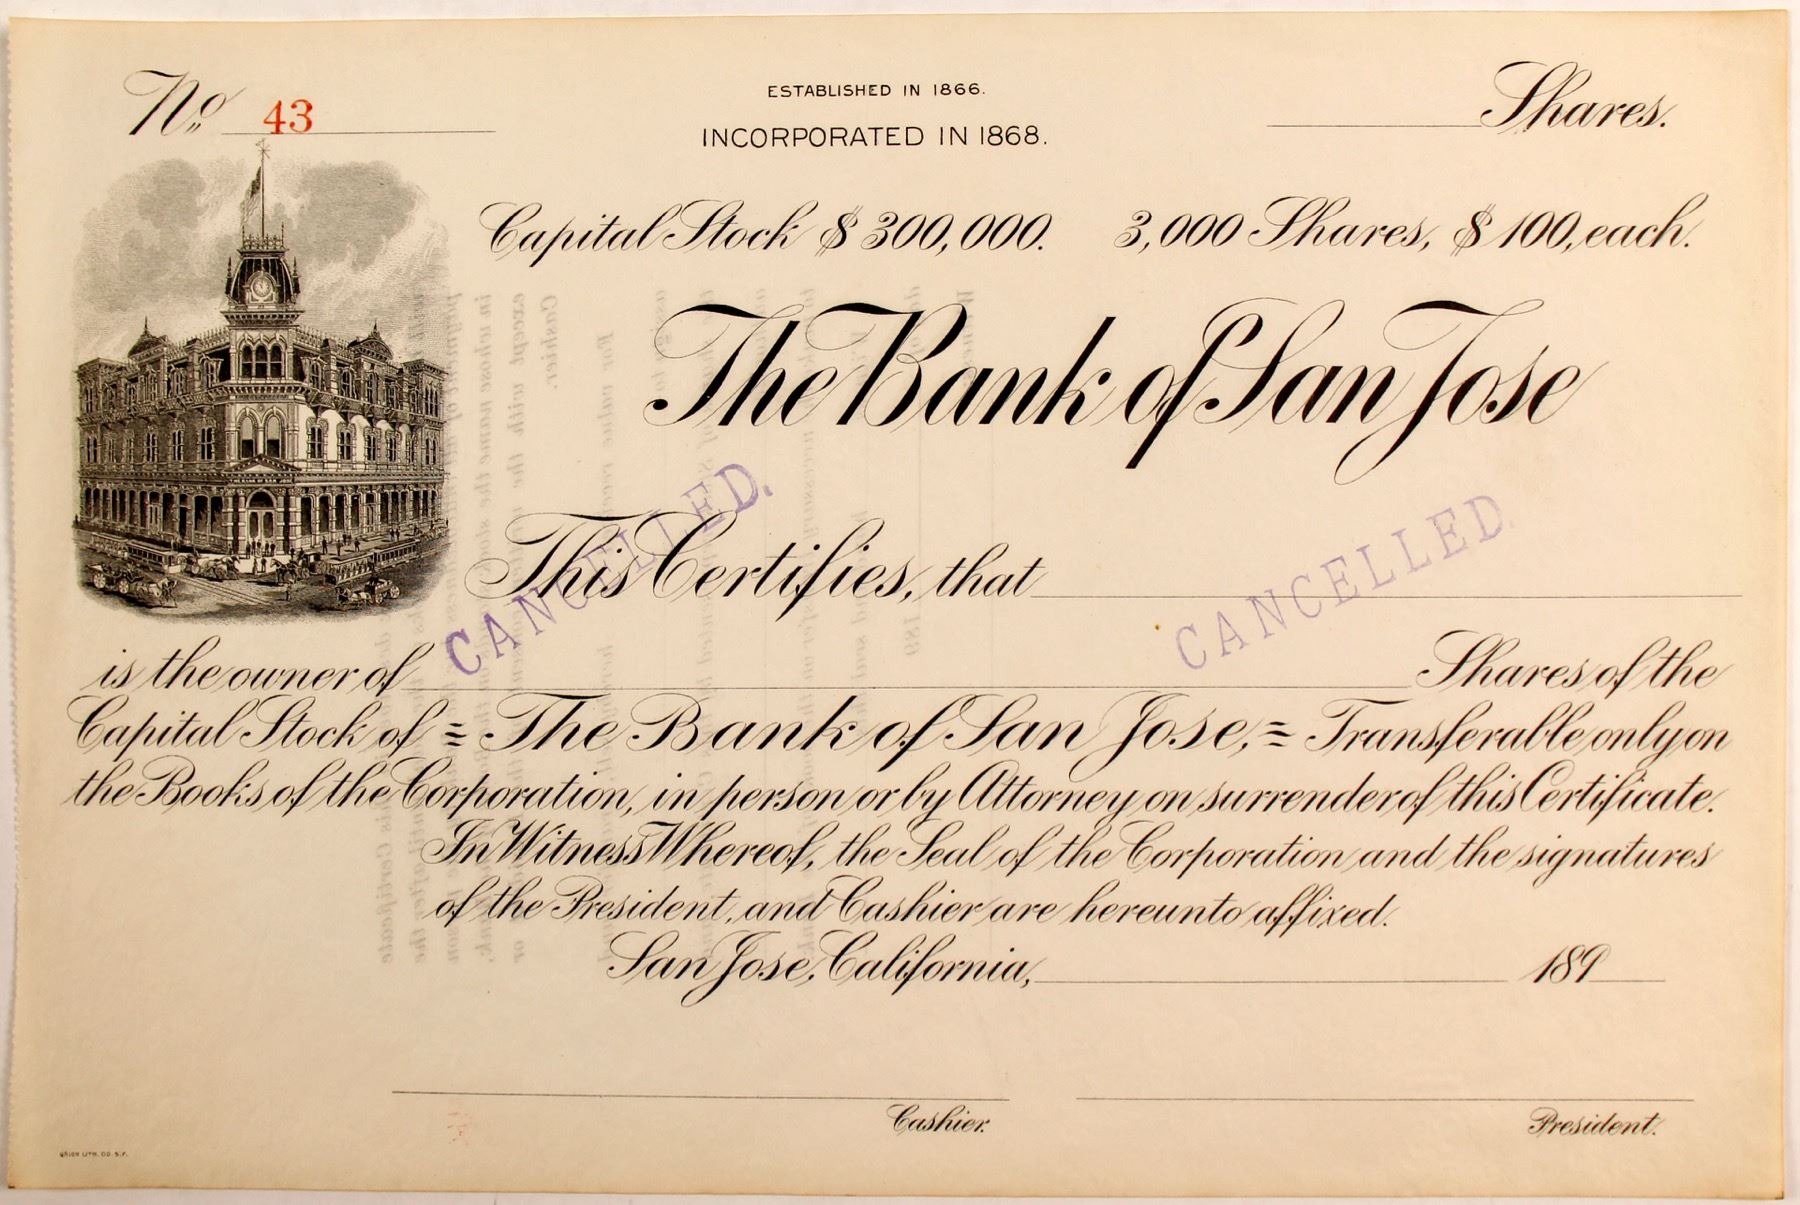 No. 43
ESTABLISHED IN 1866.
INCORPORATED IN 1868.
Shares.
Capital Stock $300,000. 3,000 Shares, $100, each.
The Bank of San Jose
THE BANK OF SAN JOSE
CANCELLED.
CANCELLED.
This Certifies, that
is the owner of Shares of the
Capital Stock of = The Bank of San Jose, = Transferable only on
the Books of the Corporation, in person or by Attorney on surrender of this Certificate.
In Witness Whereof, the Seal of the Corporation and the signatures
of the President, and Cashier are hereunto affixed.
San Jose, California, 189
Cashier.
President.
UNION LITH. CO. S.F.